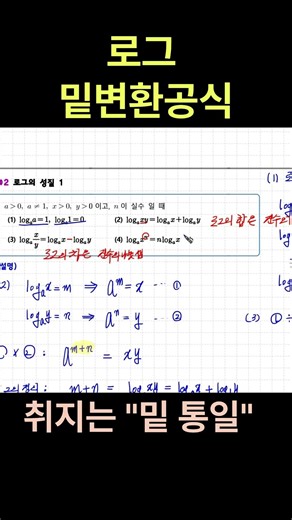 로그
밑변환공식
02 로그의 성질 1
a>0, a≠1, x>0, y>0 이고, n 이 실수 일 때
(1) logₐa=1, logₐ1=0 (2) logₐxy=logₐx+logₐy
(3) logₐ x/y =logₐx-logₐy (4) logₐxⁿ=nlogₐx
2) logₐx=m ⇒ aᵐ=x …①
logₐy=n ⇒ aⁿ=y …②
(3) ①÷
① × ② : aᵐ⁺ⁿ = xy
m+n = logₐxy = logₐx + logₐy
취지는 "밑 통일"